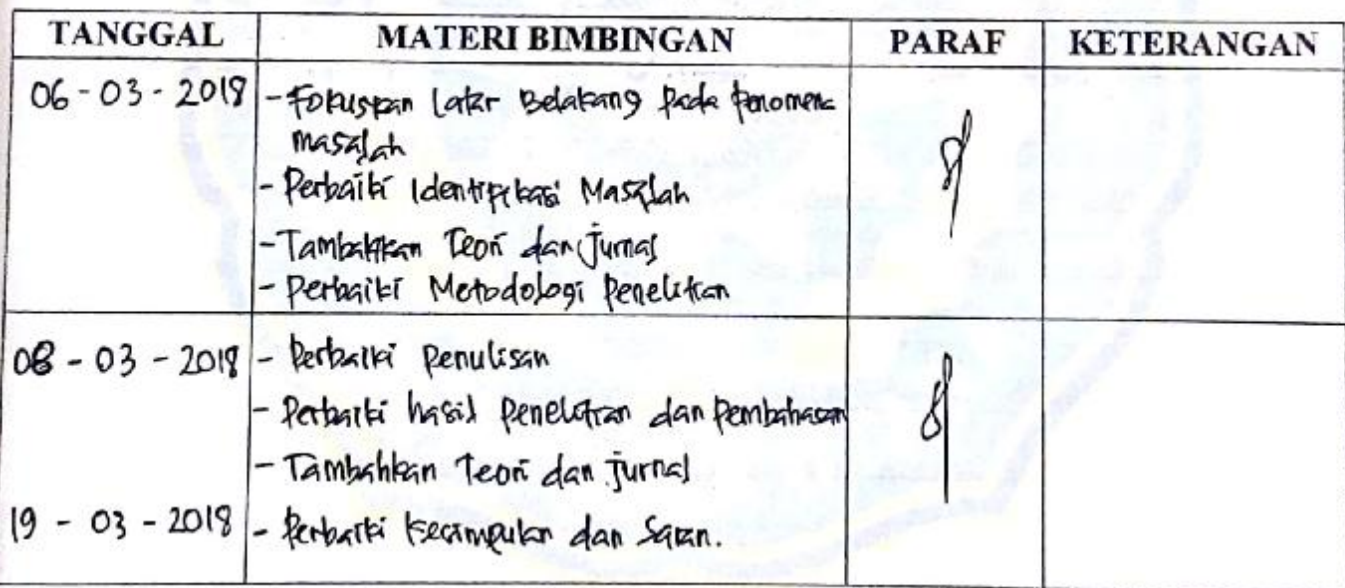 TANGGAL MATERI BIMBINGAN PARAF KETERANGAN
06 - 03 - 2018 - Fokuskan Latar Belakang pada fenomena
masalah
- Perbaiki Identifikasi Masalah
- Tambahkan Teori dan Jurnal
- Perbaiki Metodologi Penelitian
08 - 03 - 2018 - Perbaiki Penulisan
- Perbaiki hasil Penelitian dan Pembahasan
- Tambahkan Teori dan Jurnal
19 - 03 - 2018 - Perbaiki Kesimpulan dan Saran.